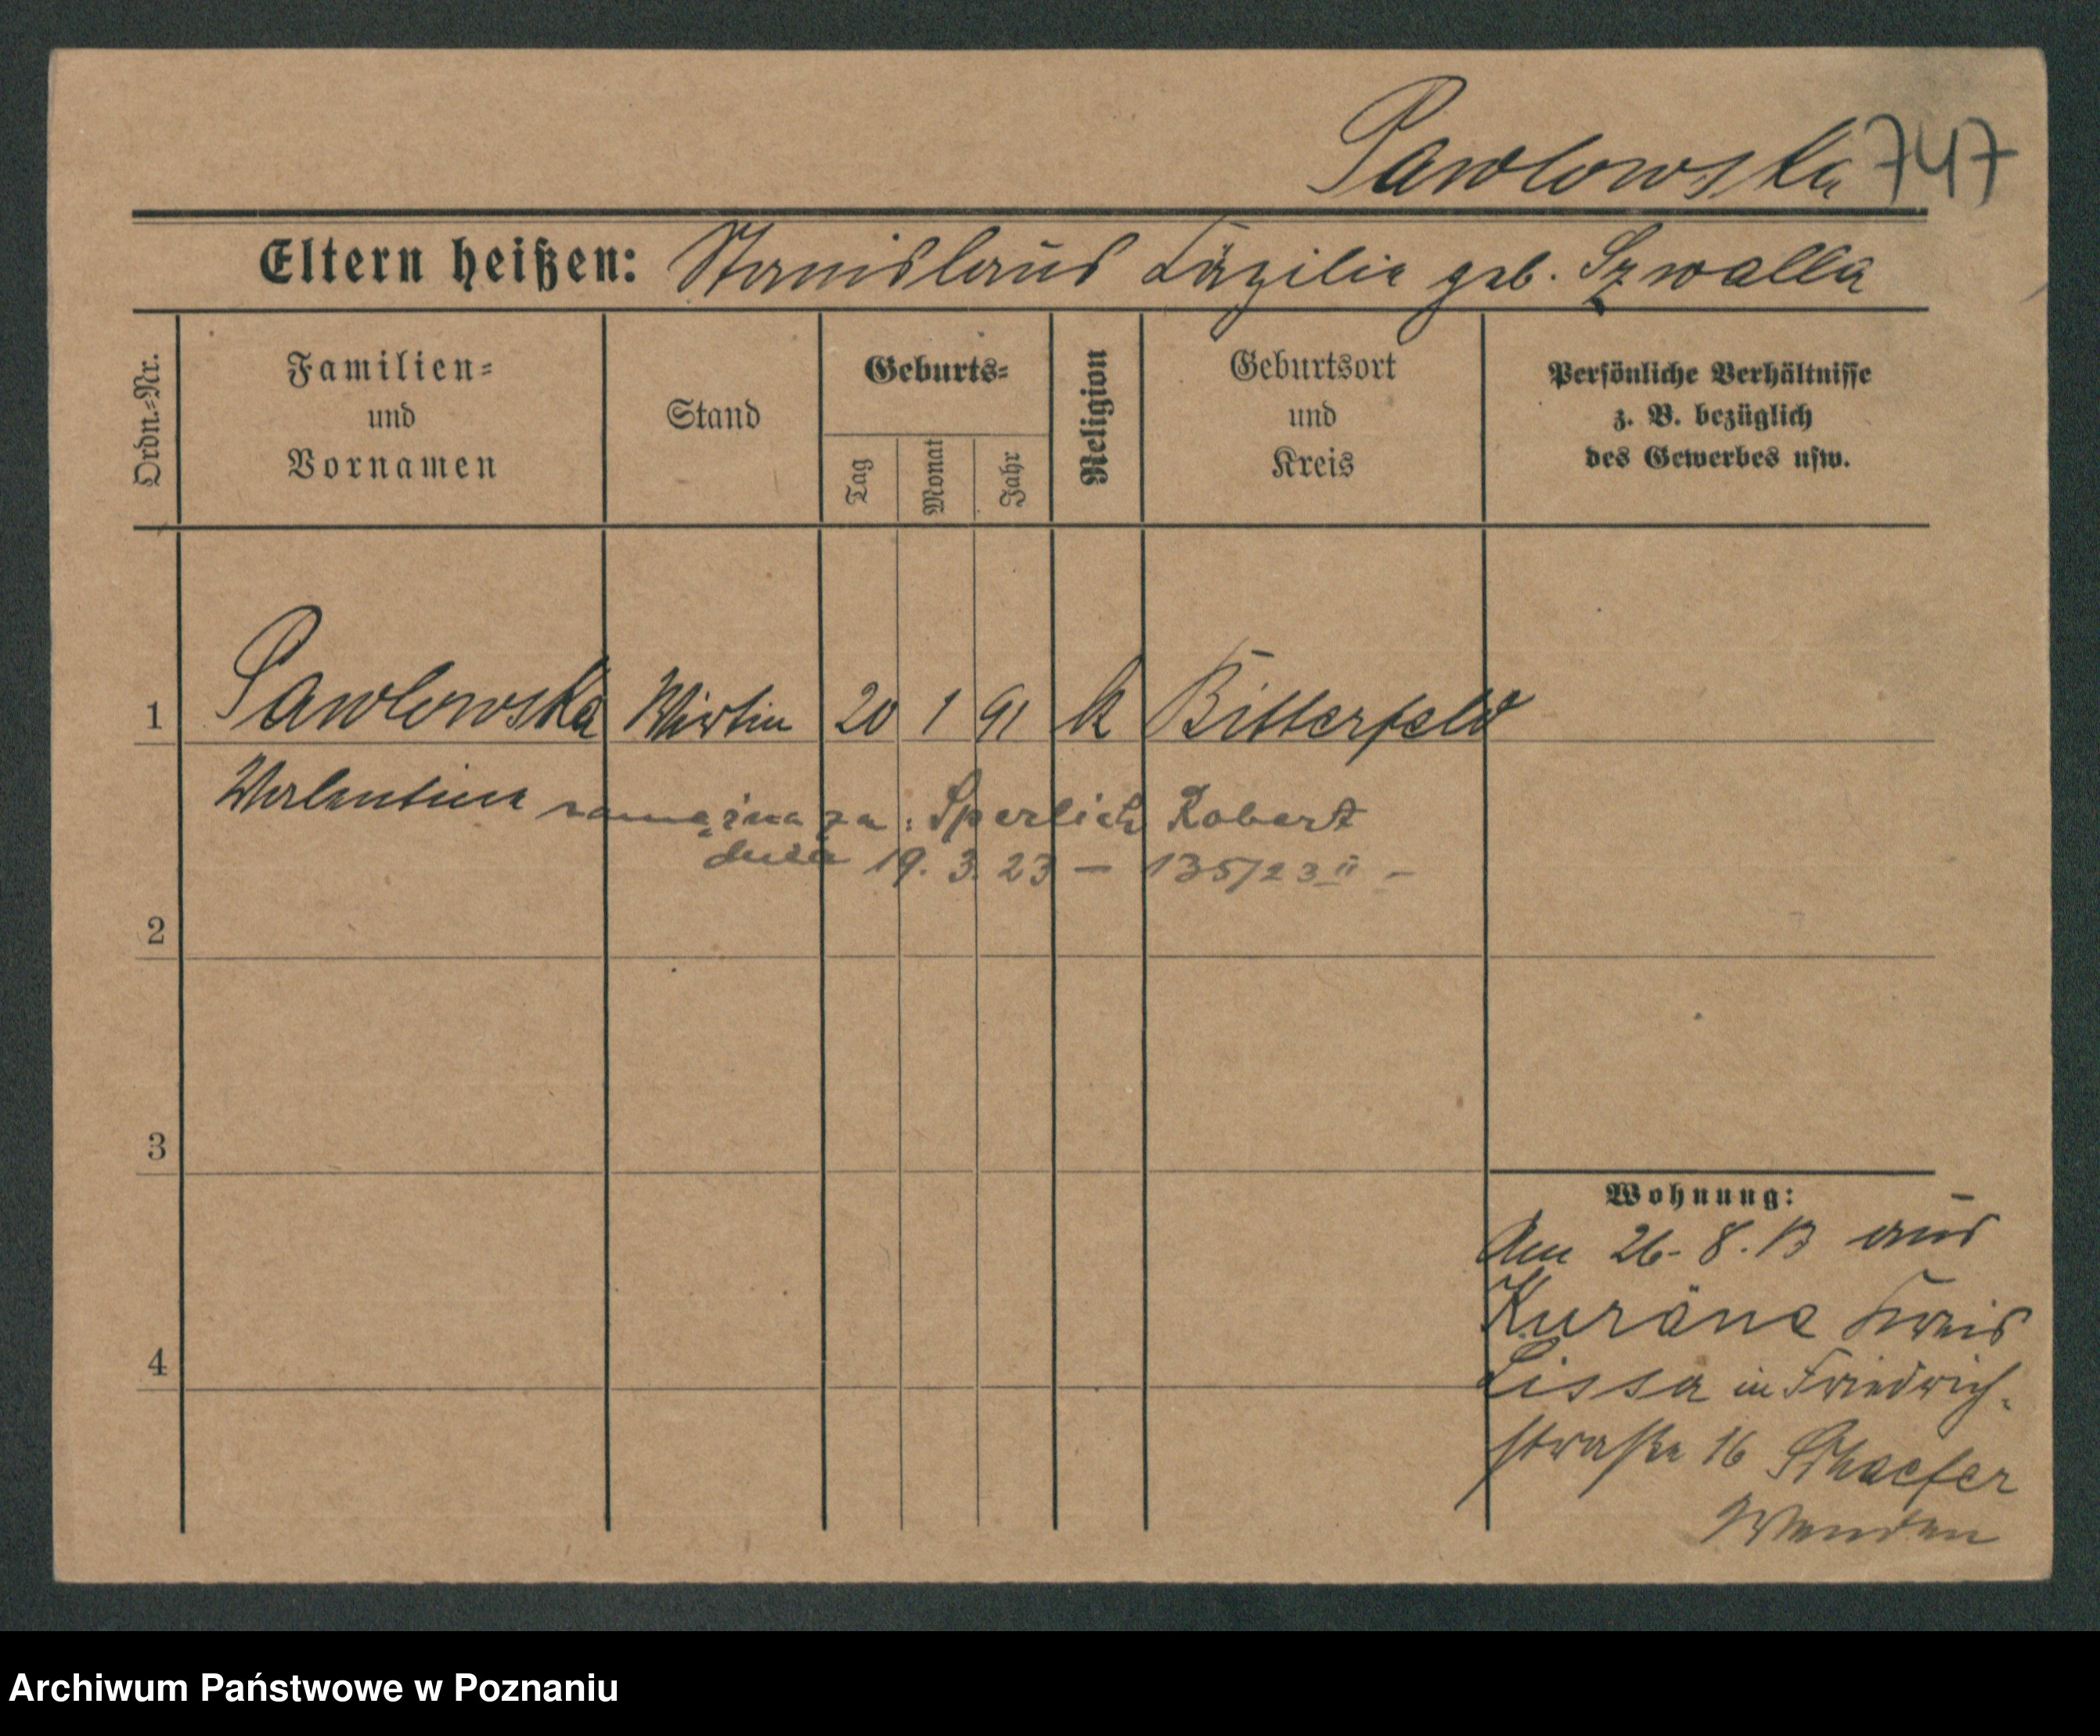 Pawlowska 747
Eltern heißen: Stanislaus Cäzilie geb. Szwalla
Ordn.-Nr.
Familien-
und
Vornamen
Stand
Geburts-
Tag
Monat
Jahr
Religion
Geburtsort
und
Kreis
Persönliche Verhältnisse
z. B. bezüglich
des Gewerbes usw.
1 Pawlowska Wirtin 20 1 91 k Bitterfeld
Walentina zamężna za: Sperlich Robert
dnia 19. 3. 23 – 135/23 II –
2
3
4
Wohnung:
Am 26. 8. 13 aus
Kuräne Kreis
Lissa in Friedrich-
straße 16 Schaefer